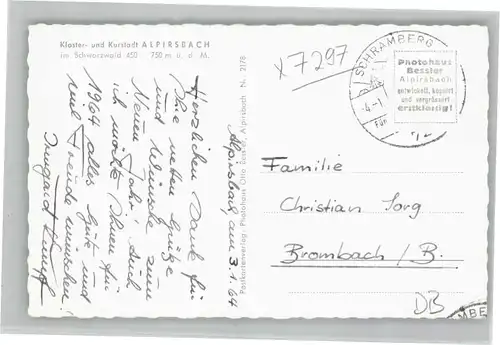 Kloster- und Kurstadt ALPIRSBACH
im Schwarzwald 450 750 m ü. d. M.
Alpirsbach, am 3.1.64
Herzlichen Dank für
Ihre netten Grüße
und Wünsche zum
Neuen Jahr. Auch
ich möchte Ihnen für
1964 alles Gute und
viel Freude wünschen!
Irmgard
Postkartenverlag: Photohaus Otto Bessler, Alpirsbach Nr. 2178
x7297
SCHRAMBERG
Photohaus
Bessler
Alpirsbach
entwickelt, kopiert
und vergrößert
erstklassig!
Familie
Christian Sorg
Brombach / B.
DB
MBE